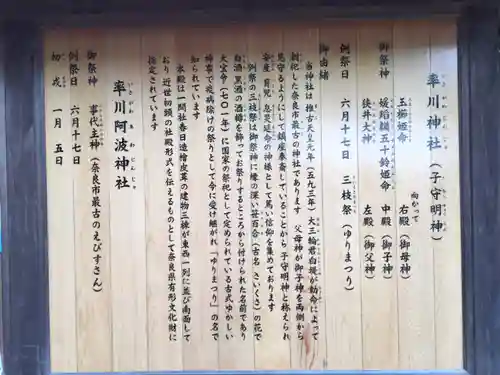 率川神社(子守明神)
いさがわじんじゃ
向かって
御祭神 玉櫛姫命 右殿(御母神)
媛蹈韛五十鈴姫命 中殿(御子神)
狭井大神 左殿(御父神)
例祭日 六月十七日 三枝祭(ゆりまつり)
御由緒
当神社は 推古天皇元年(五九三年)大三輪君白堤が勅命によって
創祀した奈良市最古の神社であります 父母神が御子神を両側から
見守るようにして鎮座奉斎していることから 子守明神と称えられ
安産 育児 息災延命の神様として篤い信仰を集めております
例祭の三枝祭は御祭神に縁の深い笹百合(古名 さいくさ)の花で
白酒 黒酒の酒樽を飾ってお祭りするところから付けられた名前であり
大宝令(七〇一年)に国家の祭祀として定められている古式ゆかしい
神事で疫病除けの祭りとして今に受け継がれ「ゆりまつり」の名で
知られています
本殿は一間社春日造檜皮葺の建物三棟が東西一列に並び南面して
おり 近世初頭の社殿形式を伝えるものとして奈良県有形文化財に
指定されています
率川阿波神社
いさがわあわじんじゃ
御祭神 事代主神(奈良市最古のえびすさん)
例祭日 六月十七日
初戎 一月 五日